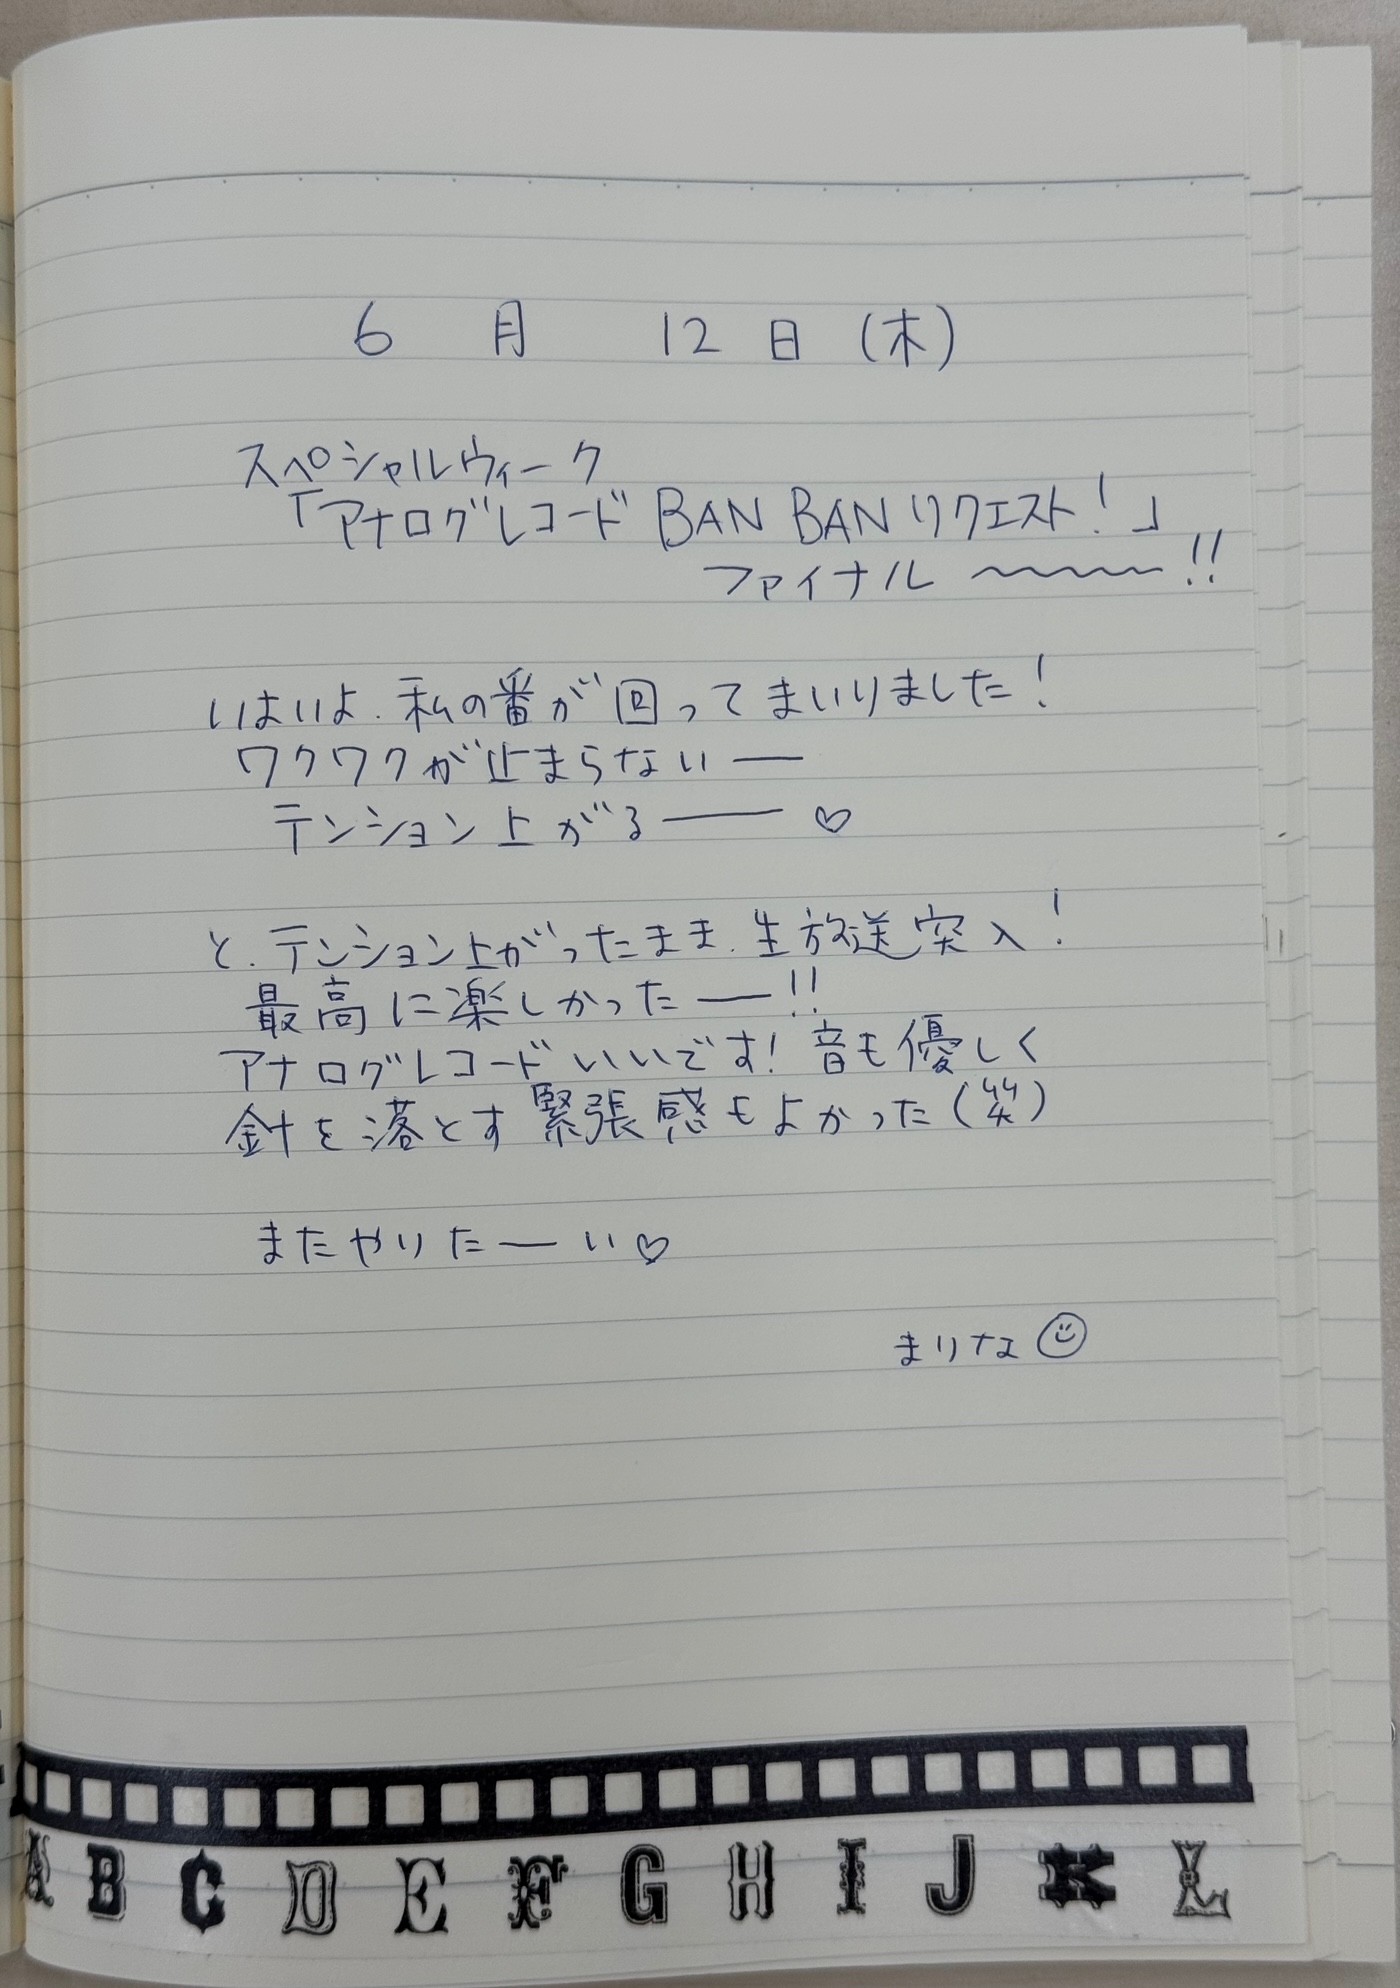 6月 12日(木)
スペシャルウィーク
「アナログレコード BAN BAN リクエスト!」
ファイナル〜〜〜!!
いよいよ、私の番が回ってまいりました!
ワクワクが止まらないー
テンション上がるー♡
と、テンション上がったまま、生放送突入!
最高に楽しかったー!!
アナログレコードいいです!音も優しく
針を落とす緊張感もよかった(笑)
またやりたーい♡
まりな☺
A B C D E F G H I J K L